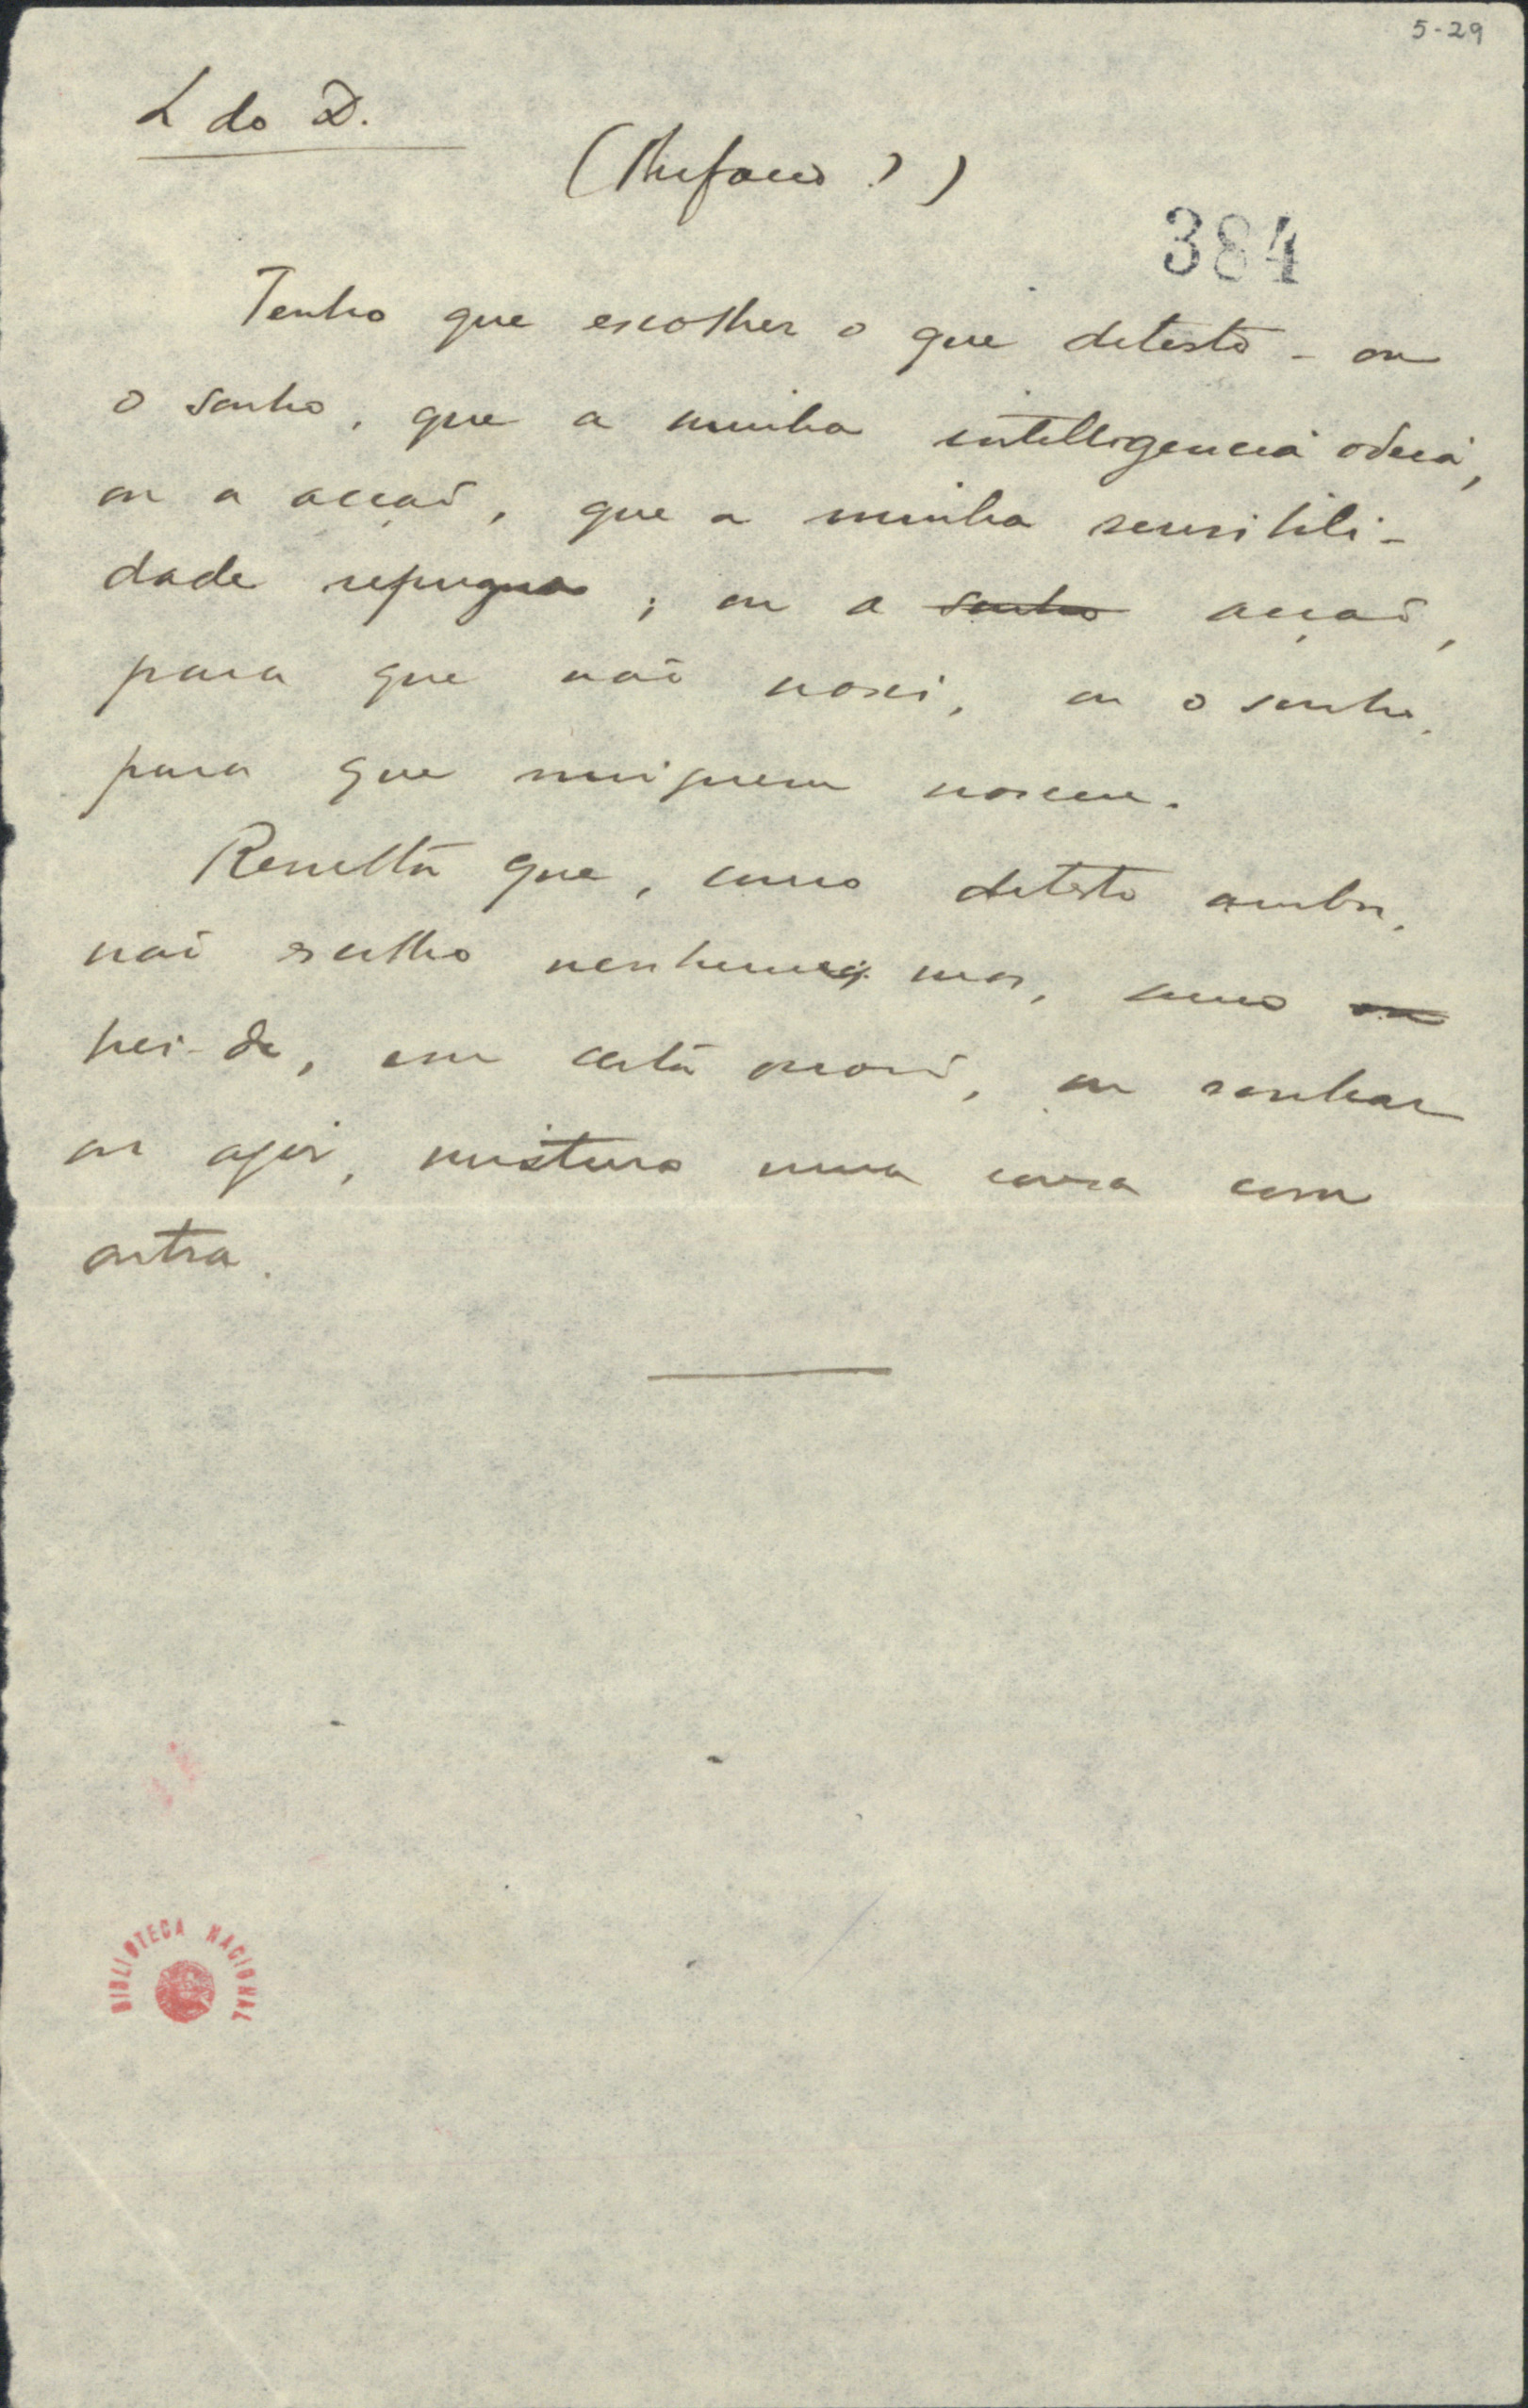 5-29
L do D.
(Prefacio?)
384
Tenho que escolher o que detesto - ou
o sonho, que a minha intelligencia odeia,
ou a acção, que a minha sensibili-
dade repugna; ou a sonho acção,
para que não nasci, ou o sonho,
para que ninguem nasceu.
Resulta que, como detesto ambos,
não escolho nenhum; mas, como
hei-de, em certa occasião, ou sonhar
ou agir, misturo uma coisa com
outra.
BIBLIOTECA NACIONAL